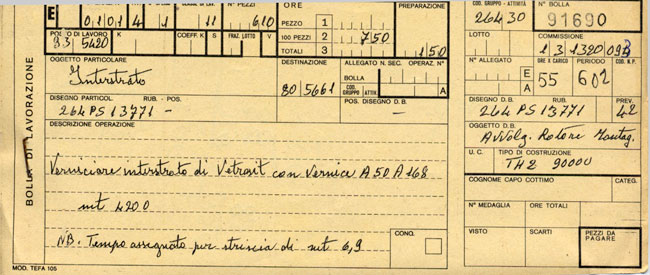 E 0 1 0 4 1 11 N° PEZZI 610 ORE PREPARAZIONE COD. GRUPPO - ATTIVITÀ N° BOLLA
PEZZO 1 264 30 91690
POSTO DI LAVORO K COEFF. K S FRAZ. LOTTO V 100 PEZZI 2 750 LOTTO COMMISSIONE
83 5420 TOTALI 3 150 1 3 1320
OGGETTO PARTICOLARE DESTINAZIONE ALLEGATO N. SEC. OPERAZ. N° N° ALLEGATO E A ORE A CARICO PERIODO COD. N.P.
Interstrato 80 5661 BOLLA COD. GRUPPO/ATTIV. A 55 602
DISEGNO PARTICOL. RUB. - POS. POS. DISEGNO D.B. DISEGNO D.B. RUB. - POS. PREV.
264 PS 13771 - - 264 PS 13771 42
DESCRIZIONE OPERAZIONE OGGETTO D.B.
Avvolg. Rotore Montag.
U. C. TIPO DI COSTRUZIONE
Verniciare interstrato di Vetrosit con Vernice A 50 A 168 TH2 90000
COGNOME CAPO COTTIMO CATEG.
mt 4200
N° MEDAGLIA ORE TOTALI
NB. Tempo assegnato per striscia di mt 6,9 CONQ. VISTO SCARTI PEZZI DA PAGARE
BOLLA DI LAVORAZIONE
MOD. TEFA 105